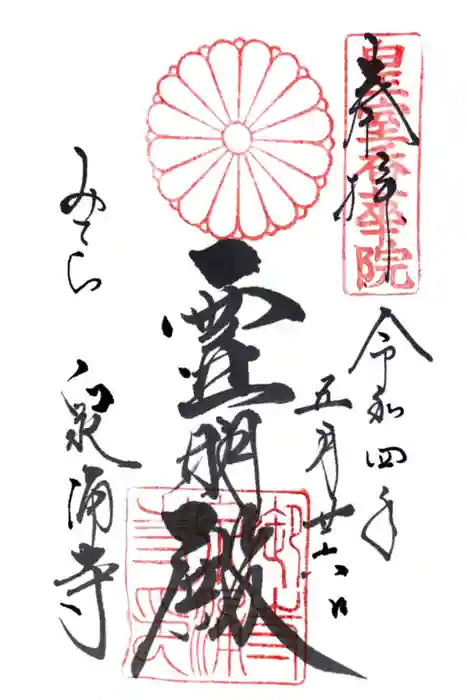 皇室香華院
奉拝
令和四年
五月廿六日
霊明殿
みてら
泉涌寺